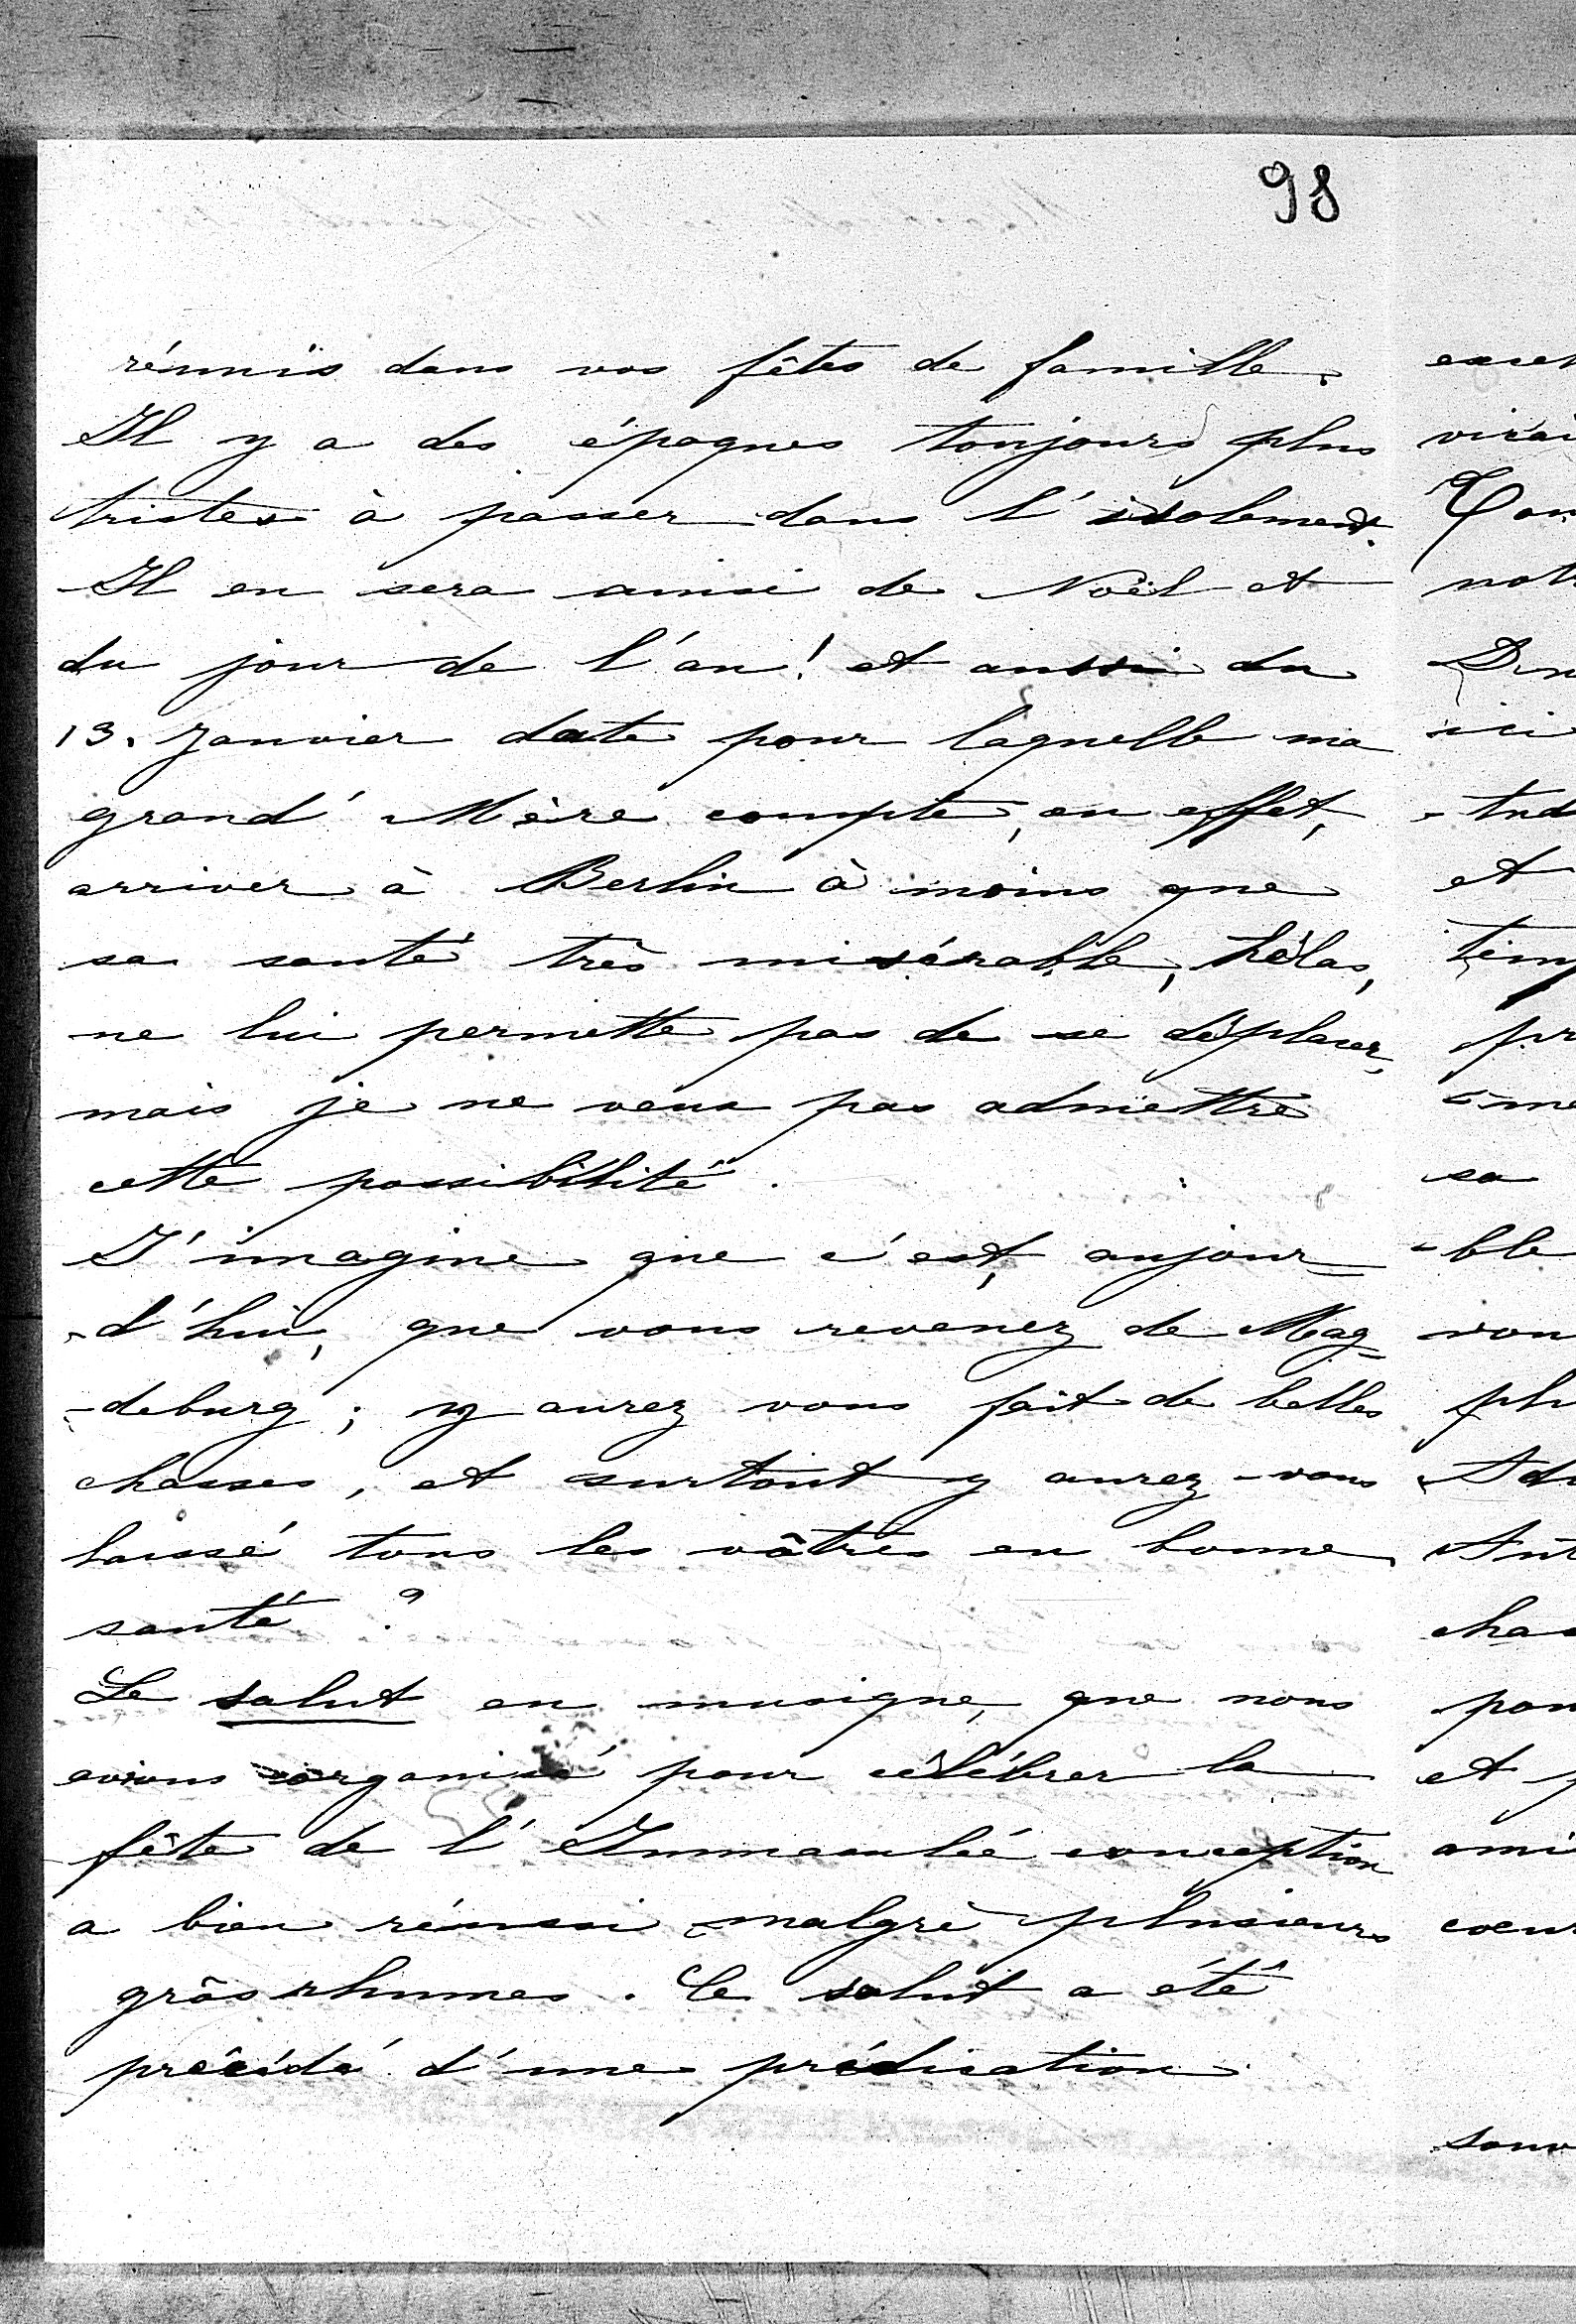 98
réunis dans vos fêtes de famille.
Il y a des époques toujours plus
tristes à passer dans l'isolement.
Il en sera ainsi de Noël et
du jour de l'an! et aussi du
13. Janvier date pour laquelle ma
grand'Mère compte, en effet,
arriver à Berlin à moins que
sa santé très misérable, hélas,
ne lui permette pas de se déplacer,
mais je ne veux pas admettre
cette possibilité.
J'imagine que c'est, aujour=
-d'hui, que vous revenez de Mag=
-deburg; y aurez vous fait de belles
chasses, et surtout y aurez-vous
laissé tous les vôtres en bonne
santé?
Le salut en musique, que nous
avions organisé pour célébrer la
fête de l'Immaculée conception
a bien réussi malgré plusieurs
gros rhumes. Ce salut a été
précédé d'une prédication
et
sa
-ble
et